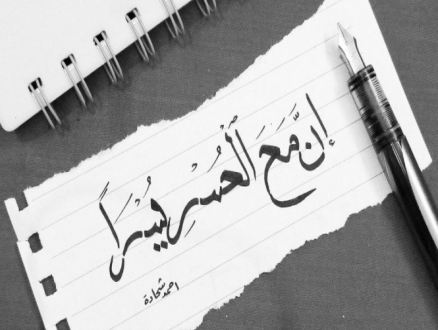 إِنَّ مَعَ الْعُسْرِ يُسْرًا
احمد شحادة